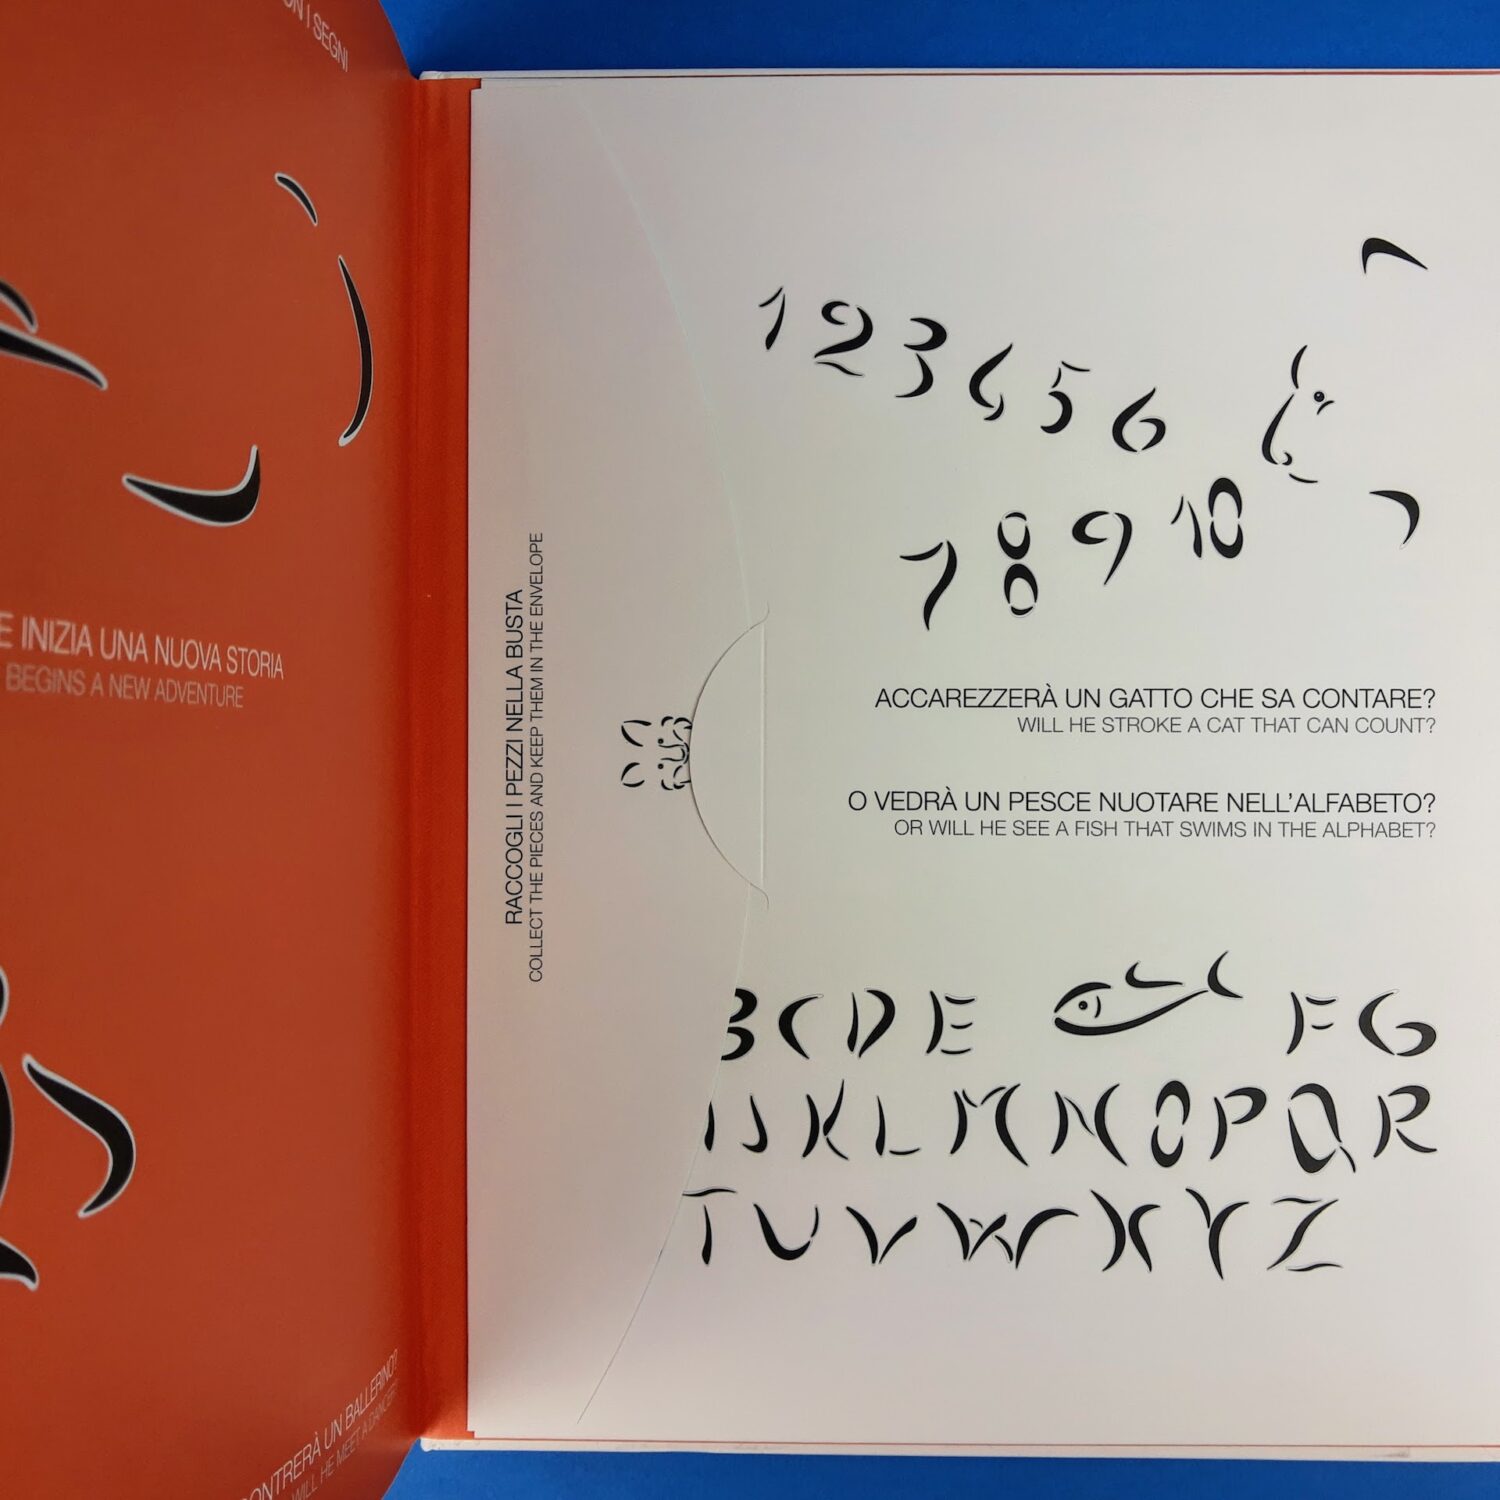 ON I SEGNI
E INIZIA UNA NUOVA STORIA
BEGINS A NEW ADVENTURE
CONTRERÀ UN BALLERINO?
WILL HE MEET A DANCER?
RACCOGLI I PEZZI NELLA BUSTA
COLLECT THE PIECES AND KEEP THEM IN THE ENVELOPE
1 2 3 4 5 6
7 8 9 10
ACCAREZZERÀ UN GATTO CHE SA CONTARE?
WILL HE STROKE A CAT THAT CAN COUNT?
O VEDRÀ UN PESCE NUOTARE NELL'ALFABETO?
OR WILL HE SEE A FISH THAT SWIMS IN THE ALPHABET?
B C D E F G
I J K L M N O P Q R
T U V W X Y Z